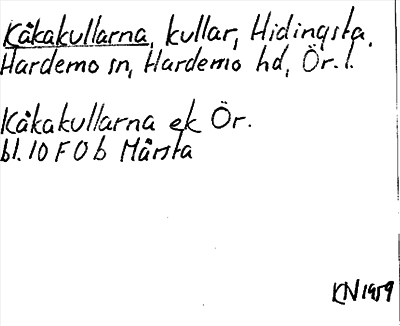 Kåkakullarna, kullar, Hidingsta,
Hardemo sn, Hardemo hd, Ör. l.
Kåkakullarna ek Ör.
bl. 10 F 0 b Mårsta
KN 1959